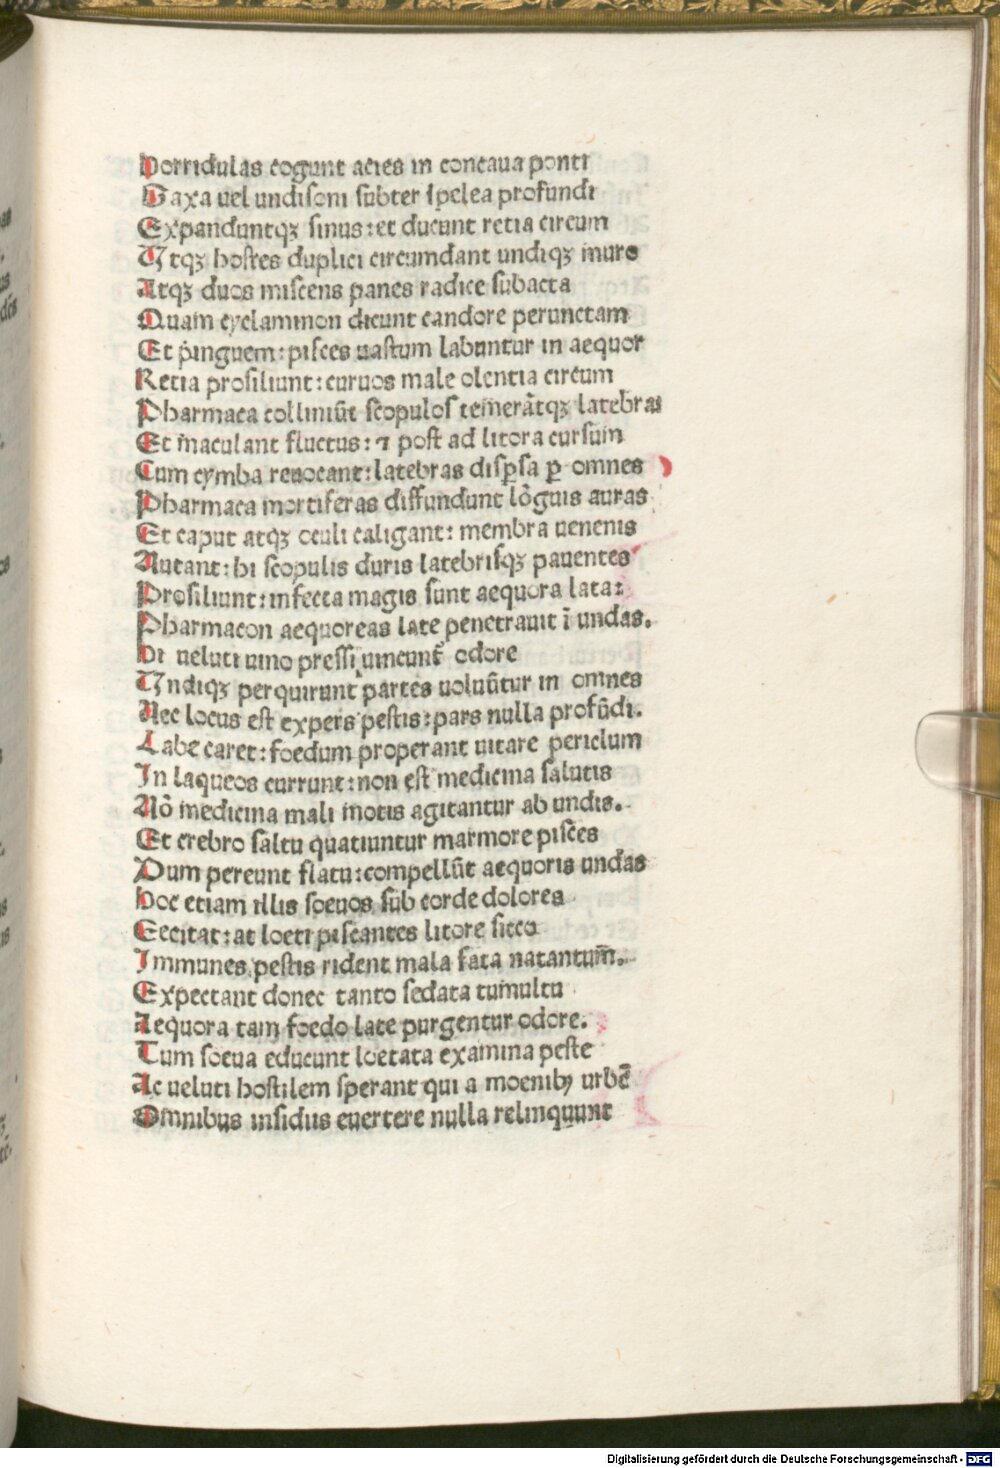 Horridulas cogunt acies in concaua ponti
Saxa uel undisoni subter spelea profundi
Expanduntqꝫ sinus: et ducunt retia circum
Vtqꝫ hostes duplici circumdant undiqꝫ muro
Atqꝫ duos miscens panes radice subacta
Quam cyclaminon dicunt candore perunctam
Et pinguem: pisces uastum labuntur in aequor
Retia prosiliunt: curuos male olentia circum
Pharmaca colliniūt scopulos temerātqꝫ latebras
Et maculant fluctus: ⁊ post ad litora cursum
Cum cymba reuocant: latebras disꝑsa ꝑ omnes
Pharmaca mortiferas diffundunt lōguis auras
Et caput atqꝫ oculi caligant: membra uenenis
Nutant: hi scopulis duris latebrisqꝫ pauentes
Prosiliunt: infecta magis sunt aequora lata:
Pharmacon aequoreas late penetrauit ī undas.
Hi ueluti uino pressi uincunt odore
Vndiqꝫ perquirunt partes uoluūtur in omnes
Nec locus est expers pestis: pars nulla profūdi.
Labe caret: foedum properant uitare periclum
In laqueos currunt: non est medicina salutis
Nō medicina mali motis agitantur ab undis.
Et crebro saltu quatiuntur marmore pisces
Dum pereunt flatu: compellūt aequoris undas
Hoc etiam illis soeuos sub corde dolores
Eccitat: at loeti piscantes litore sicco
Immunes pestis rident mala fata natantum.
Expectant donec tanto sedata tumultu
Aequora tam foedo late purgentur odore.
Tum soeua educunt loetata examina peste
Ac ueluti hostilem sperant qui a moenibꝫ urbē
Omnibus insidiis euertere nulla relinquunt
Digitalisierung gefördert durch die Deutsche Forschungsgemeinschaft - DFG